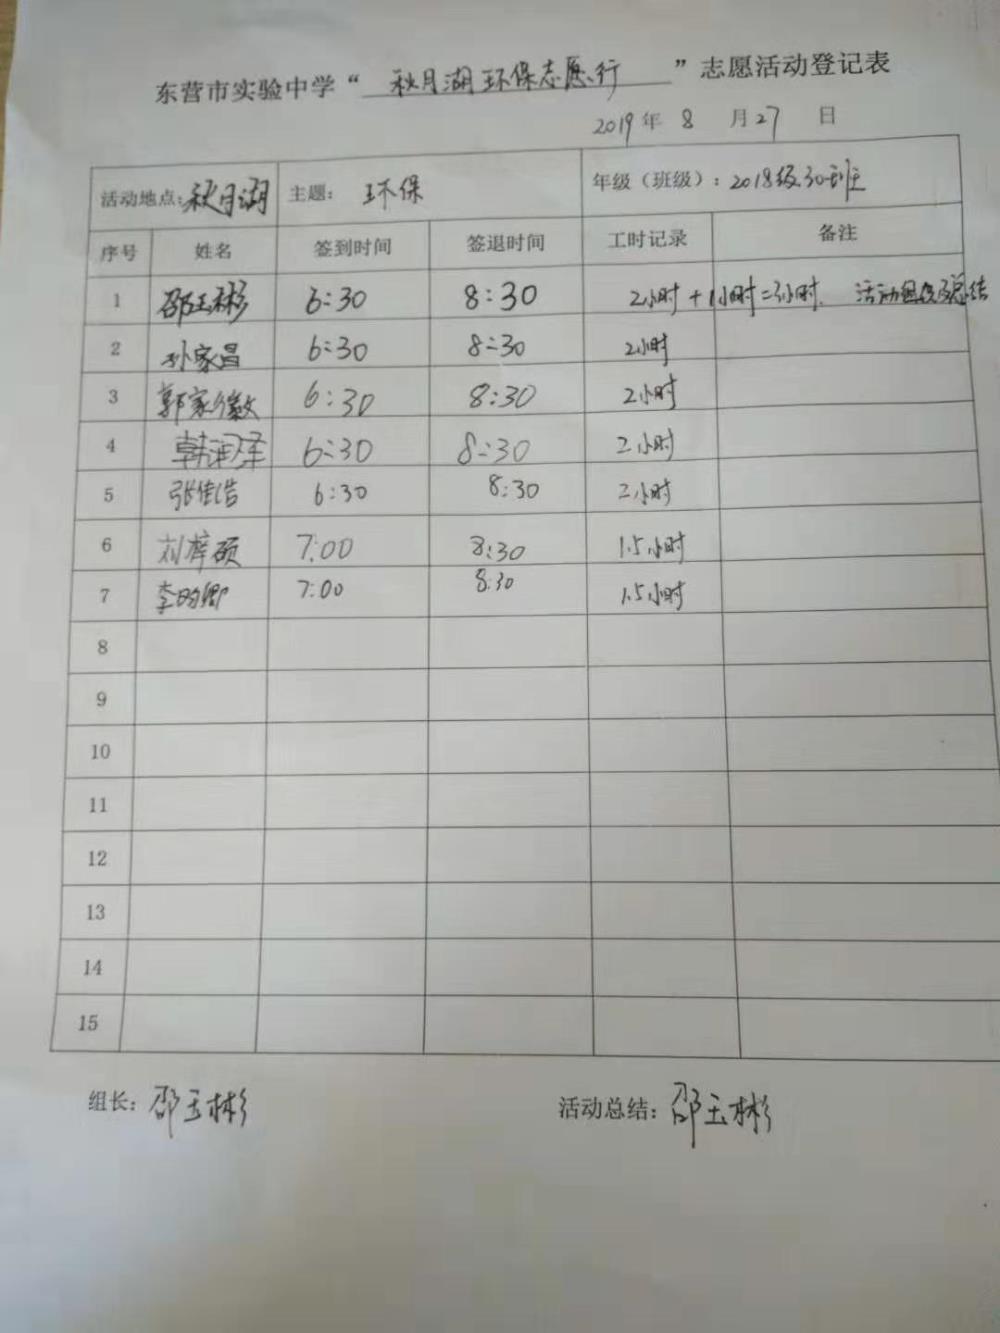 东营市实验中学“秋月湖环保志愿行”志愿活动登记表
2019年 8 月27 日
活动地点:秋月湖 主题: 环保 年级(班级):2018级30班
序号 姓名 签到时间 签退时间 工时记录 备注
1 邵玉彬 6:30 8:30 2小时+1小时=3小时. 活动组织及总结
2 孙家昌 6:30 8:30 2小时
3 郭家徽 6:30 8:30 2小时
4 韩润泽 6:30 8:30 2小时
5 张佳浩 6:30 8:30 2小时
6 刘梓硕 7:00 8:30 1.5小时
7 李昀卿 7:00 8:30 1.5小时
8
9
10
11
12
13
14
15
组长:邵玉彬 活动总结:邵玉彬